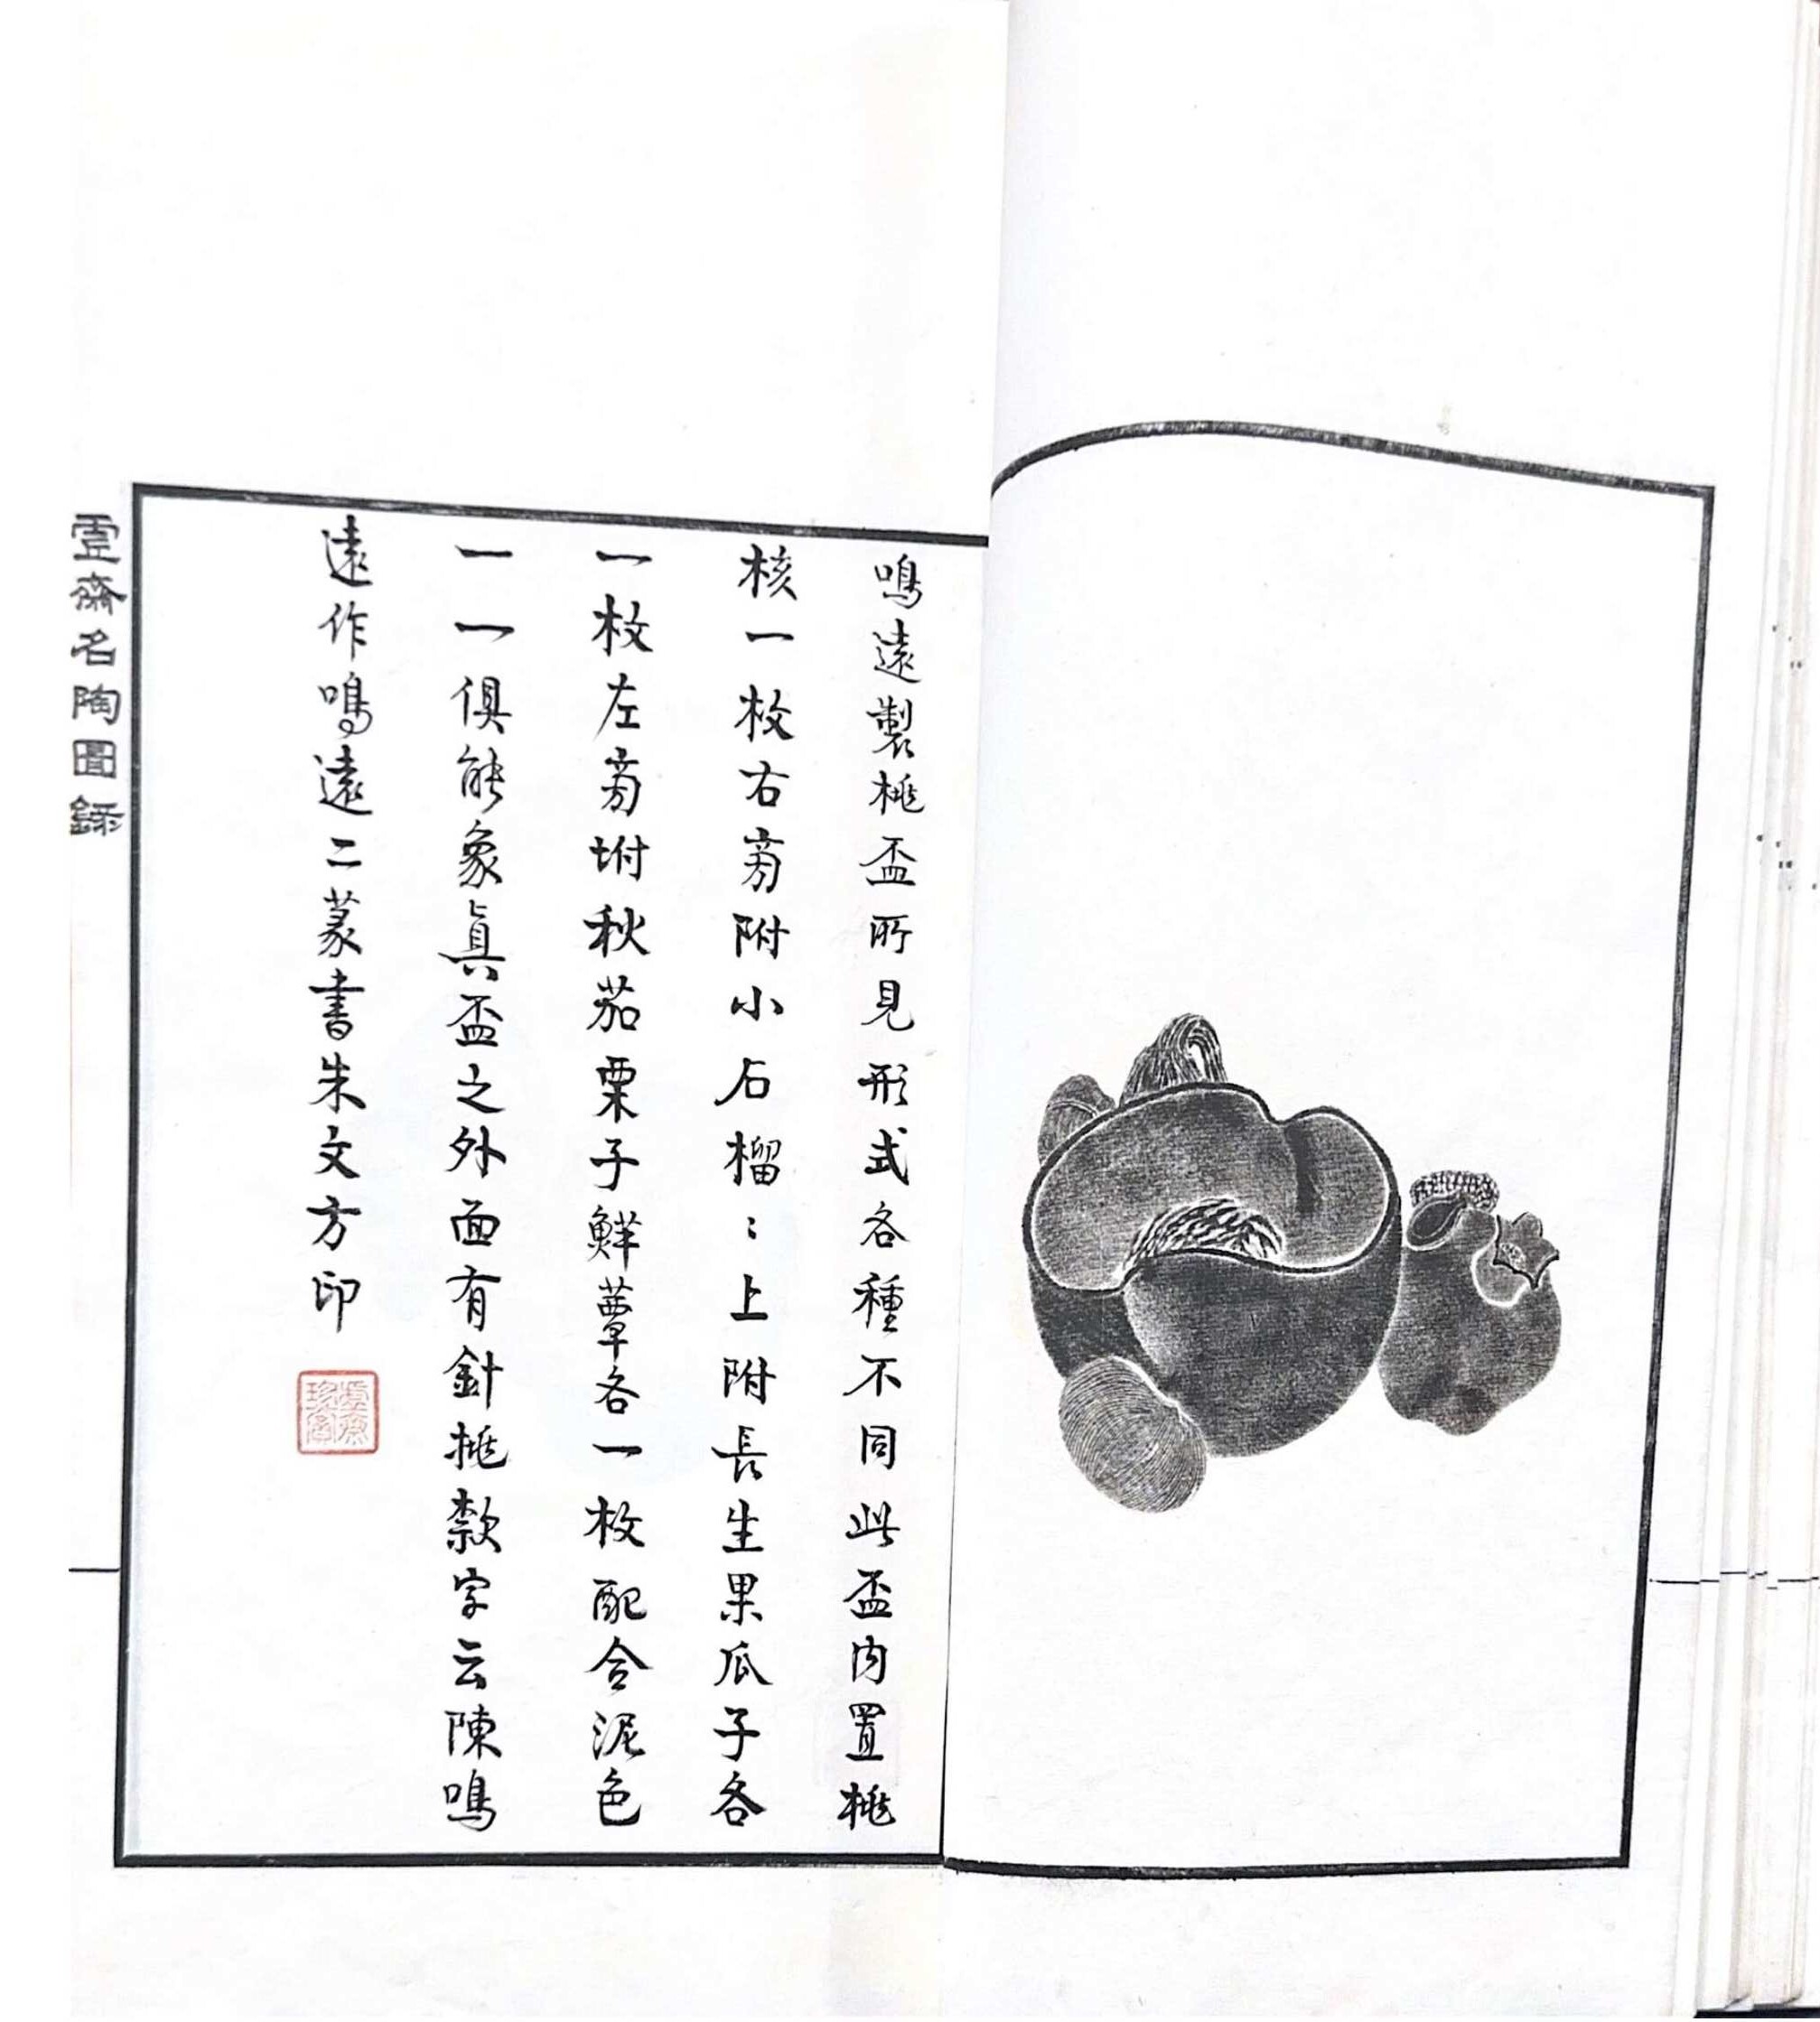 鳴遠製桃盃所見形式各種不同此盃内置桃
核一枚右旁附小石榴〻上附長生果瓜子各
一枚左旁坿秋茄栗子鮮蕈各一枚配合泥色
一一俱能象眞盃之外面有針桃款字云陳鳴
遠作鳴遠二篆書朱文方印
壼齋名陶圖錄